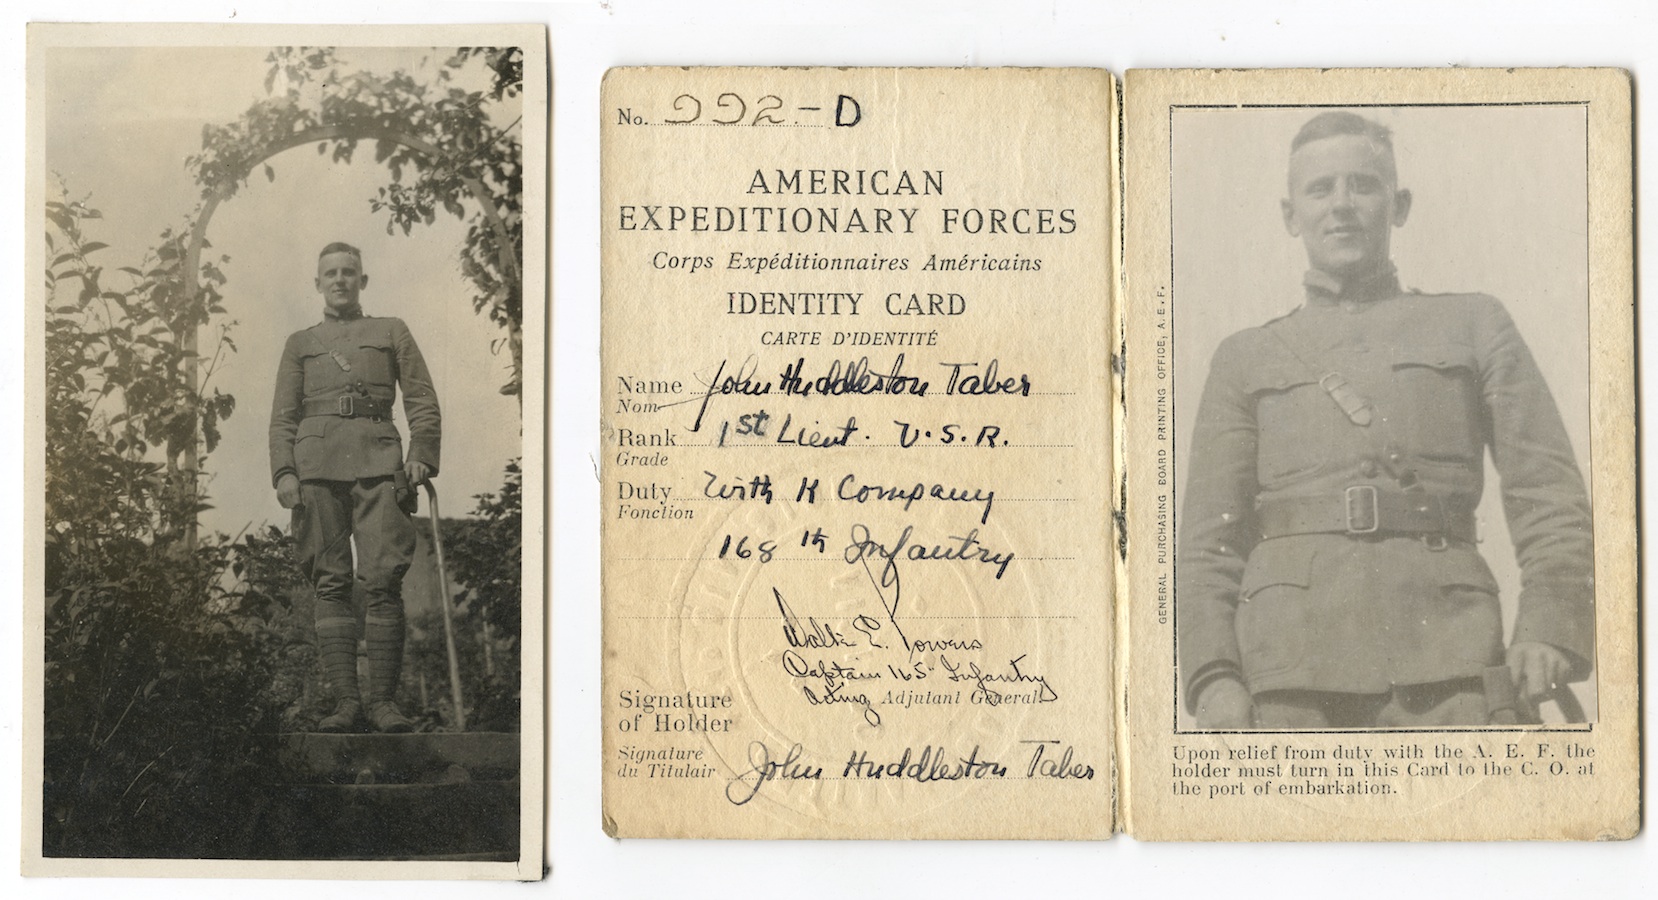 No. 992-D
AMERICAN
EXPEDITIONARY FORCES
Corps Expéditionnaires Américains
IDENTITY CARD
CARTE D'IDENTITÉ
Name John Huddleston Taber
Nom
Rank 1st Lieut. U.S.R.
Grade
Duty With K Company
Fonction
168th Infantry
Walter E. Powers
Captain 165" Infantry
Acting Adjutant General.
Signature
of Holder
Signature
du Titulair John Huddleston Taber
GENERAL PURCHASING BOARD PRINTING OFFICE, A.E.F.
Upon relief from duty with the A. E. F. the
holder must turn in this Card to the C. O. at
the port of embarkation.